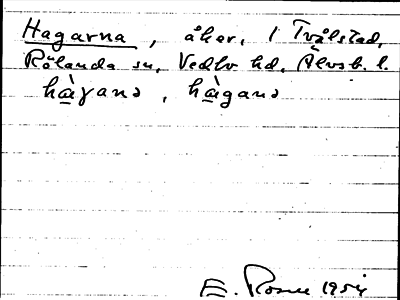 Hagarna, åker, 1 Tvålstad,
Rölanda sn, Vedbo hd, Älvsb. l.
hàγanɔ, hàganɔ
E. Rosell 1954